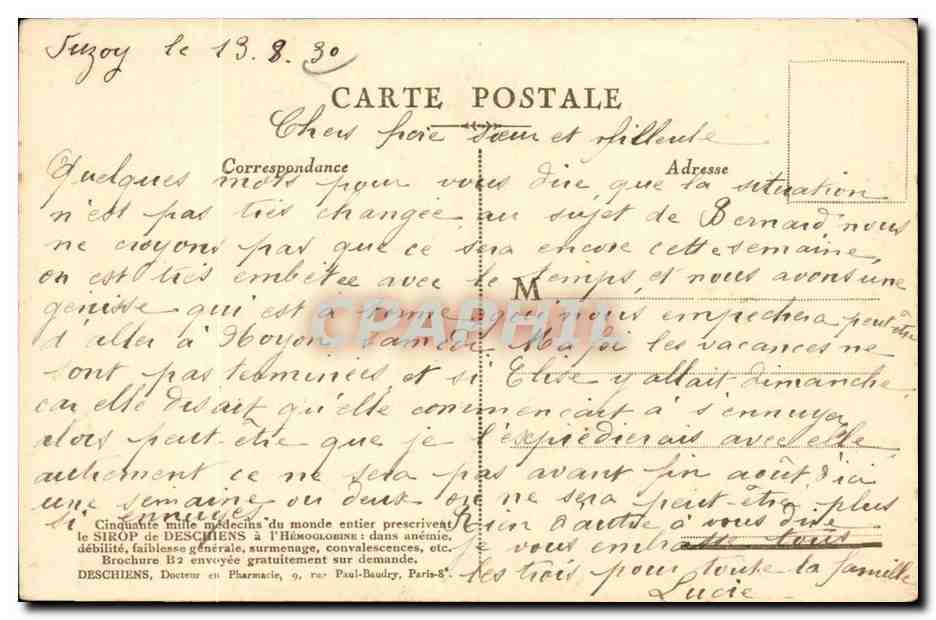 Suzoy le 13.8.30
CARTE POSTALE
Chers frère sœur et filleule
Correspondance Adresse
Quelques mots pour vous dire que la situation
n'est pas très changée au sujet de Bernard, nous
ne croyons pas que ce sera encore cette semaine,
on est très embêtée avec le temps, et nous avons une
M
génisse qui est à terme qui nous empêchera peut-être
CPAPHIL
d'aller à Noyon samedi. Ma foi les vacances ne
sont pas terminées et si Elise y allait dimanche
car elle disait qu'elle commençait à s'ennuyer
alors peut-être que je l'expédierais avec elle
autrement ce ne sera pas avant fin août d'ici
une semaine ou deux on ne sera peut-être plus
si ennuyés
Rien d'autre à vous dire
je vous embrasse tous
les trois pour toute la famille
Lucie
Cinquante mille médecins du monde entier prescrivent
le SIROP de DESCHIENS à l'HÉMOGLOBINE : dans anémie,
débilité, faiblesse générale, surmenage, convalescences, etc.
Brochure B2 envoyée gratuitement sur demande.
DESCHIENS, Docteur en Pharmacie, 9, rue Paul-Baudry, Paris-8e.